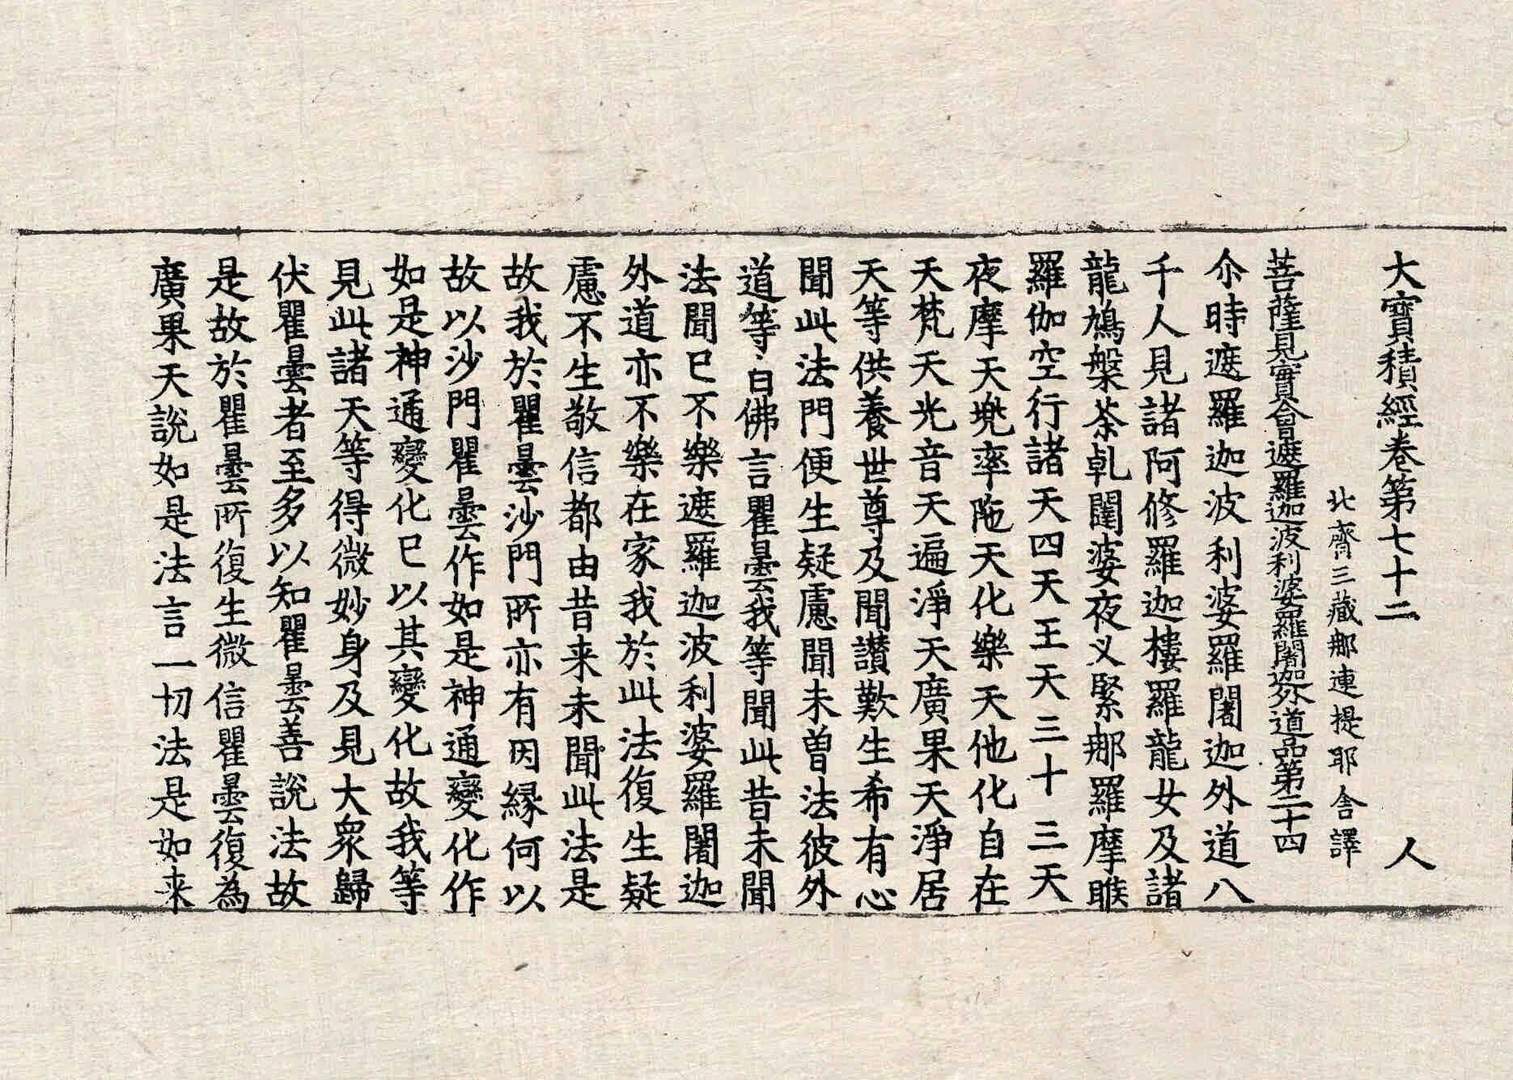 大寳積經卷第七十二　人
北齊三藏那連提耶舍譯
菩薩見實會遮羅迦波利婆羅闍迦外道品第二十四
尒時遮羅迦波利婆羅闍迦外道八
千人見諸阿修羅迦樓羅龍女及諸
龍鳩槃荼乹闥婆夜叉緊那羅摩睺
羅伽空行諸天四天王天三十三天
夜摩天兠率陁天化樂天他化自在
天梵天光音天遍淨天廣果天淨居
天等供養世尊及聞讃歎生希有心
聞此法門便生疑慮聞未曽法彼外
道等白佛言瞿曇我等聞此昔未聞
法聞已不樂遮羅迦波利婆羅闍迦
外道亦不樂在家我於此法復生疑
慮不生敬信都由昔来未聞此法是
故我於瞿曇沙門所亦有因縁何以
故以沙門瞿曇作如是神通變化作
如是神通變化已以其變化故我等
見此諸天等得微妙身及見大衆歸
伏瞿曇者至多以知瞿曇善說法故
是故於瞿曇所復生微信瞿曇復為
廣果天說如是法言一切法是如来